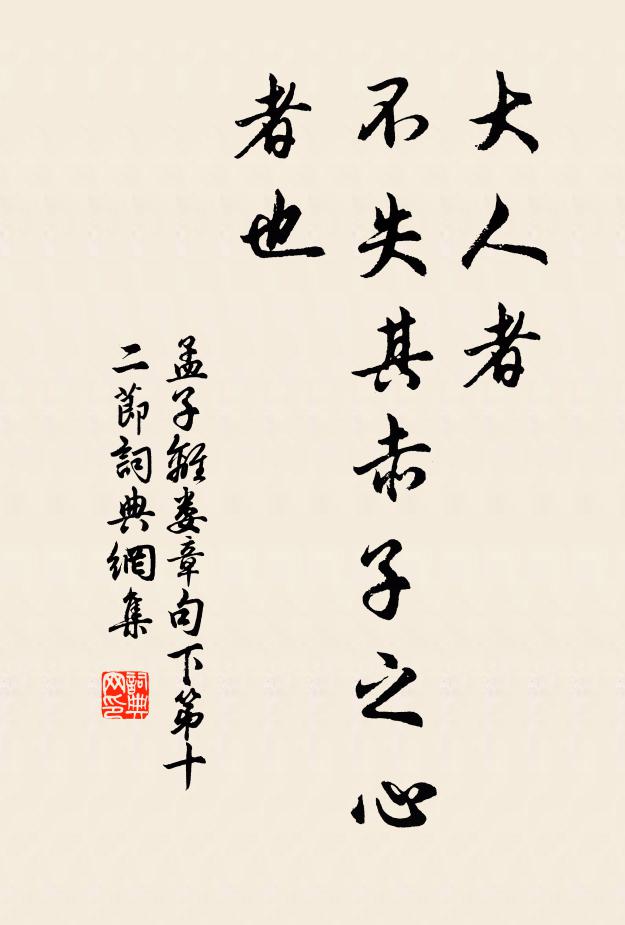 大人者
不失其赤子之心
者也
孟子離婁章句下第十
二節詞典網集
詞典
网印